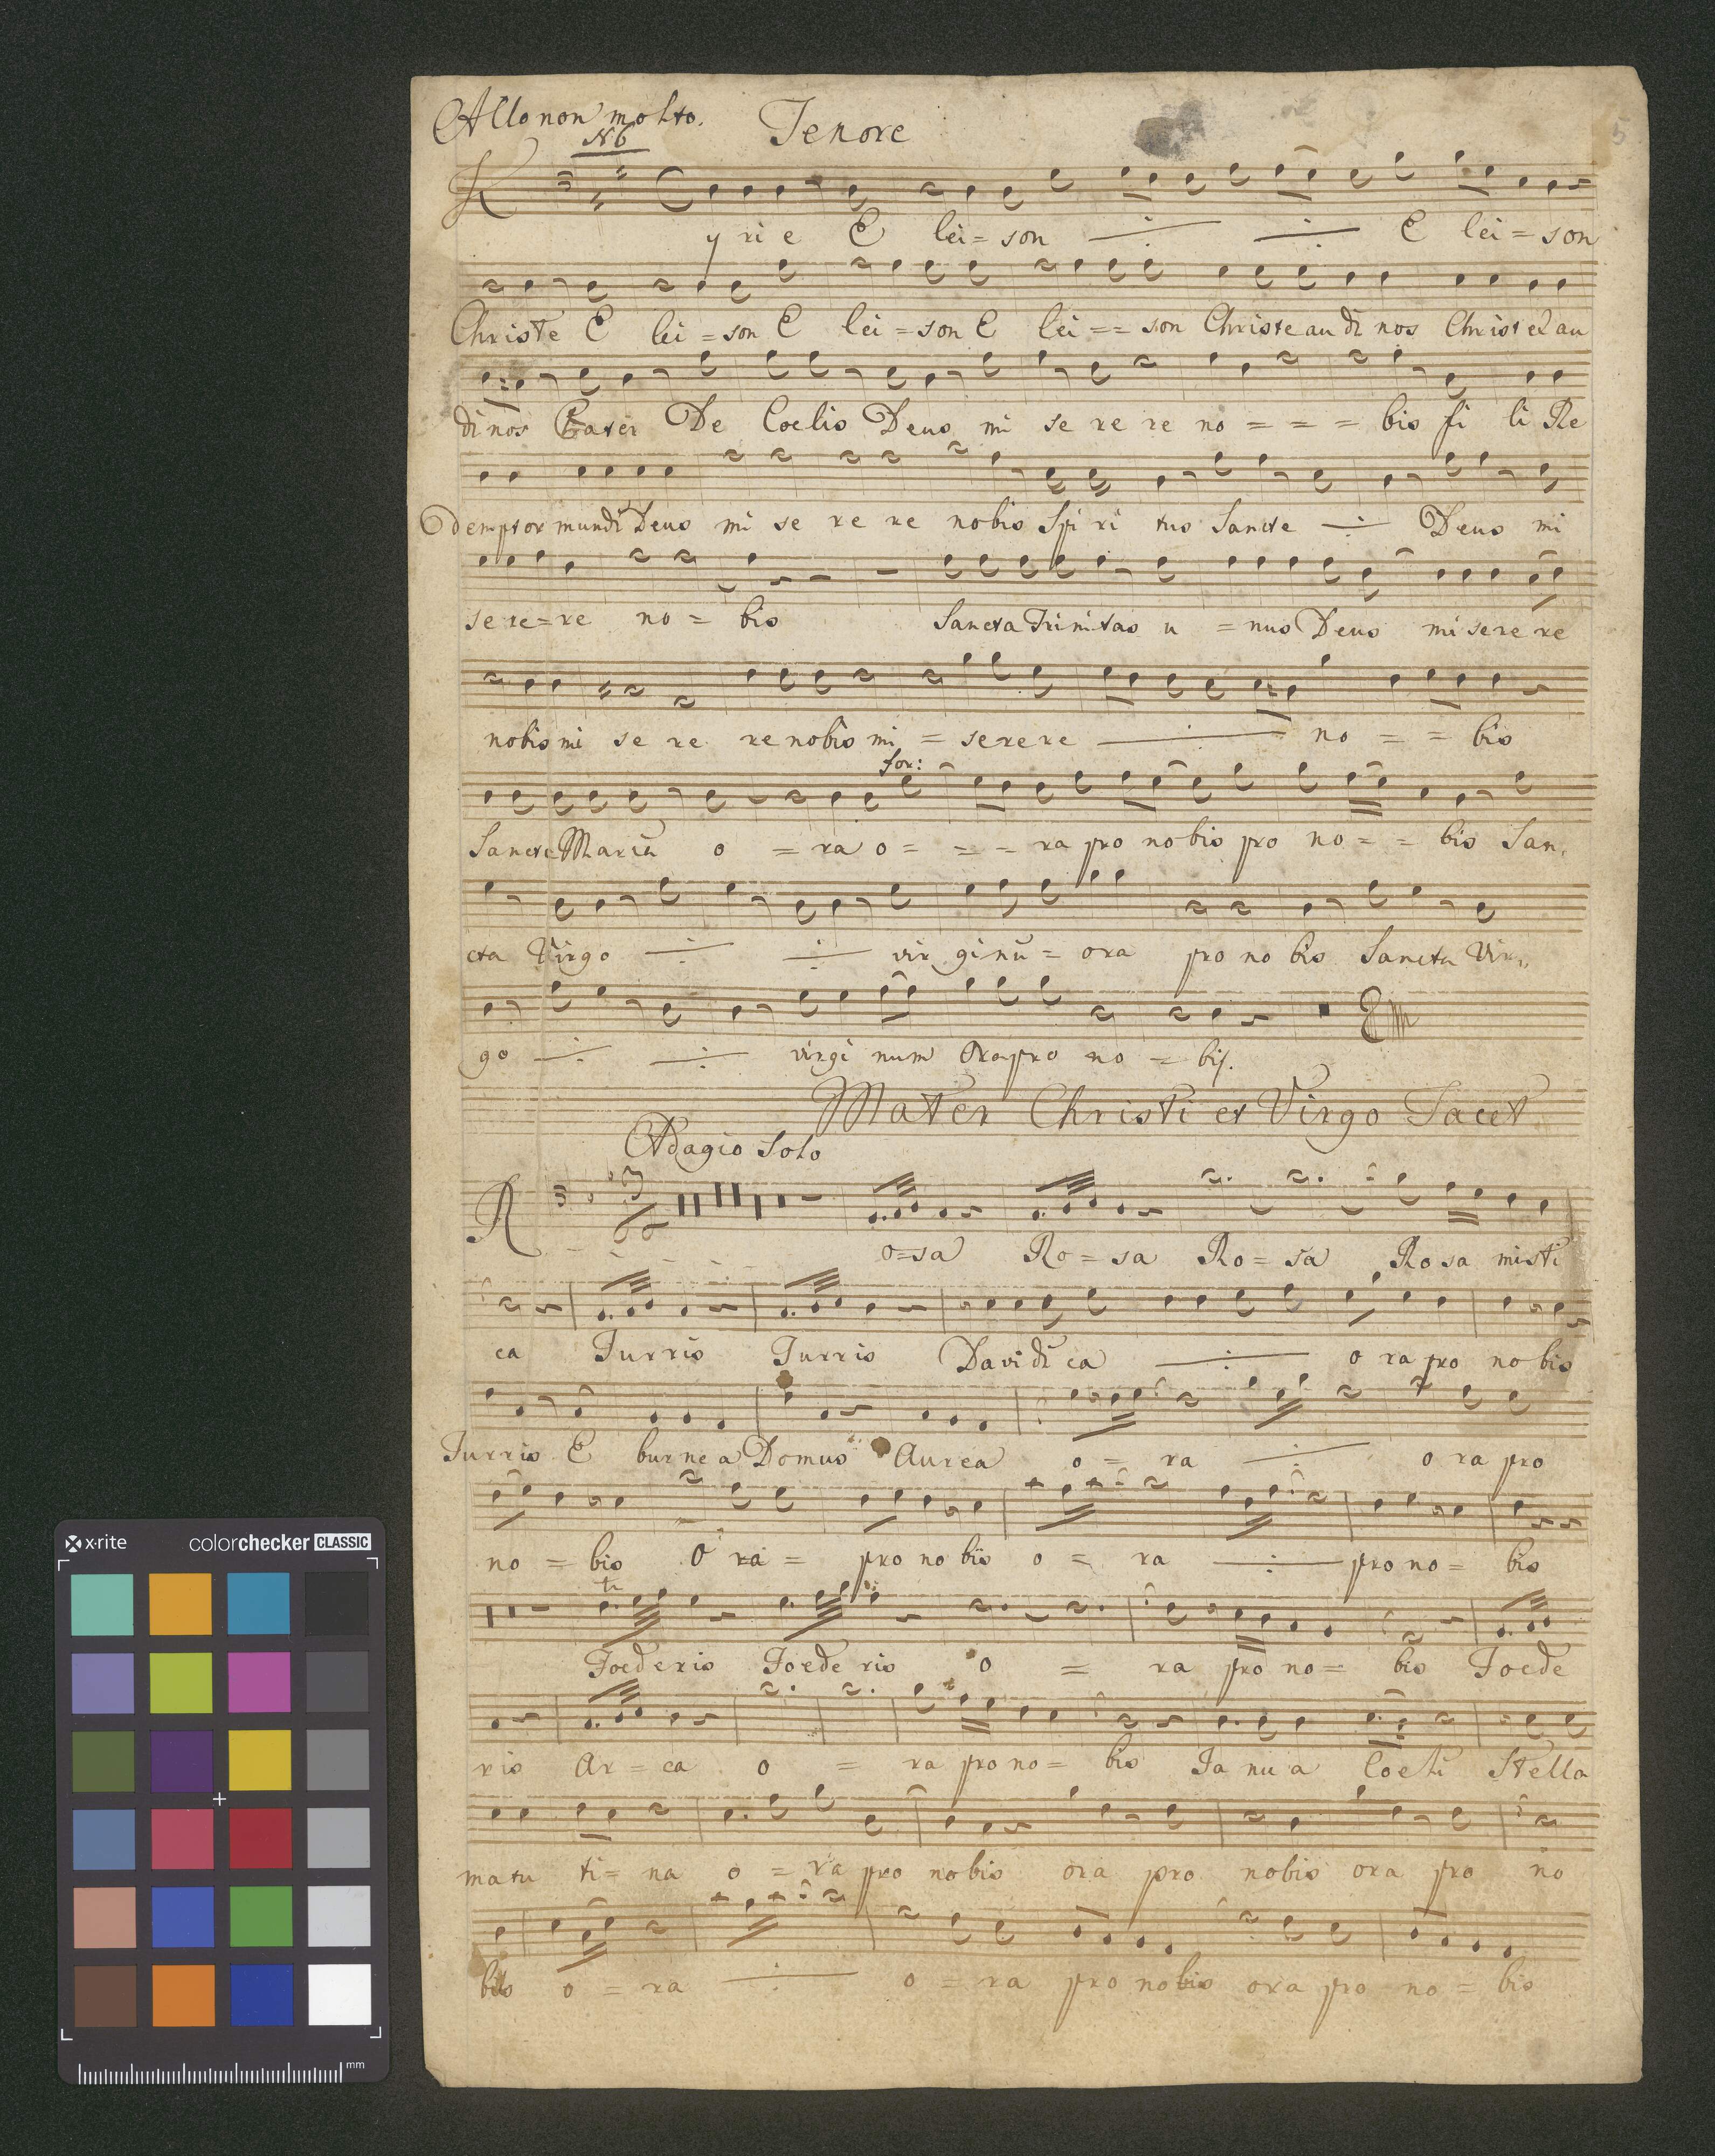 Allo non molto. Tenore
N6
5
Kyrie E lei = son E lei = son
Christe E lei = son E lei = son E lei == son Christe au di nos Christe au
di nos Pater De Coelis Deus mi se re re no = = = bis fi li Re
demptor mundi Deus mi se re re nobis Spi ri tus Sancte Deus mi
se re = re no = bis Sancta Trinitas u = nus Deus mi se re re
nobis mi se re re nobis mi = se re re no = = bis
for:
Sancta Maria o = ra o = = = ra pro nobis pro no = = bis San,
cta Virgo vir ginū = ora pro no bis Sancta Vir,,
go virgi num Ora pro no = bis.
Mater Christi et Virgo Tacet
Adagio Solo
Ro=sa Ro = sa Ro = sa Rosa misti
ca Turris Turris Davidi ca o ra pro no bis
Turris E burne a Domus Aurea o = ra o ra pro
no = bis O ra = pro no bis o = ra pro no = bis
tr
Foederis Foede ris o = ra pro no = bis Foede
ris Ar = ca o = ra pro no = bis Ja nu a Coeli Stella
matu ti = na o = ra pro nobis ora pro nobis ora pro no
bis o = ra o = ra pro nobis ora pro no = bis
x·rite colorchecker CLASSIC
mm